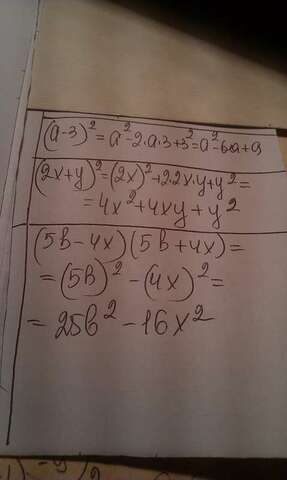 (a-3)² = a² - 2·a·3 + 3² = a² - 6a + 9
(2x+y)² = (2x)² + 2·2x·y + y² =
= 4x² + 4xy + y²
(5b - 4x)(5b + 4x) =
= (5b)² - (4x)² =
= 25b² - 16x²